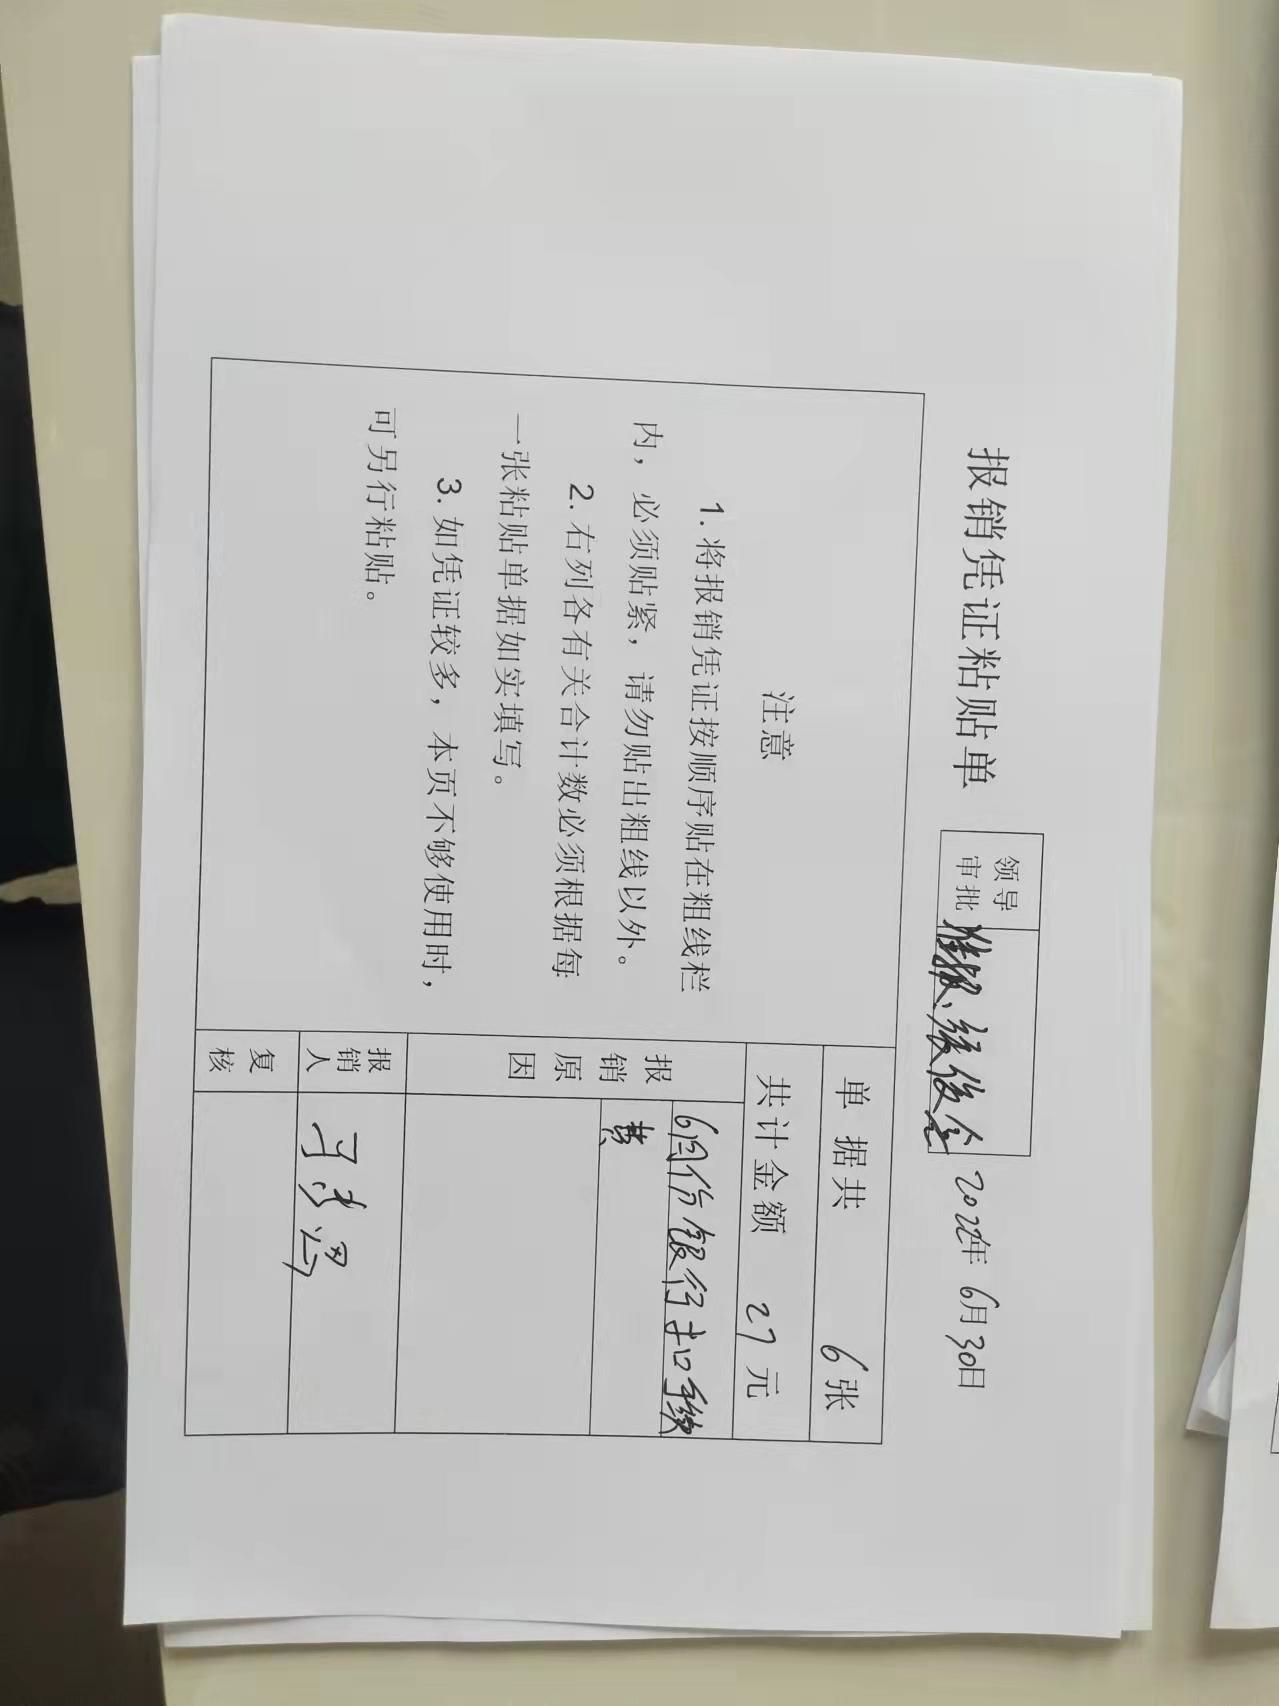 报销凭证粘贴单
领导
审批
准报 张俊全
2022年 6月30日
注意
1. 将报销凭证按顺序贴在粗线栏
内，必须贴紧，请勿贴出粗线以外。
2. 右列各有关合计数必须根据每
一张粘贴单据如实填写。
3. 如凭证较多，本页不够使用时，
可另行粘贴。
单据共 6张
共计金额 27元
报销原因
6月份银行扣手续
费
报
销
人
复
核